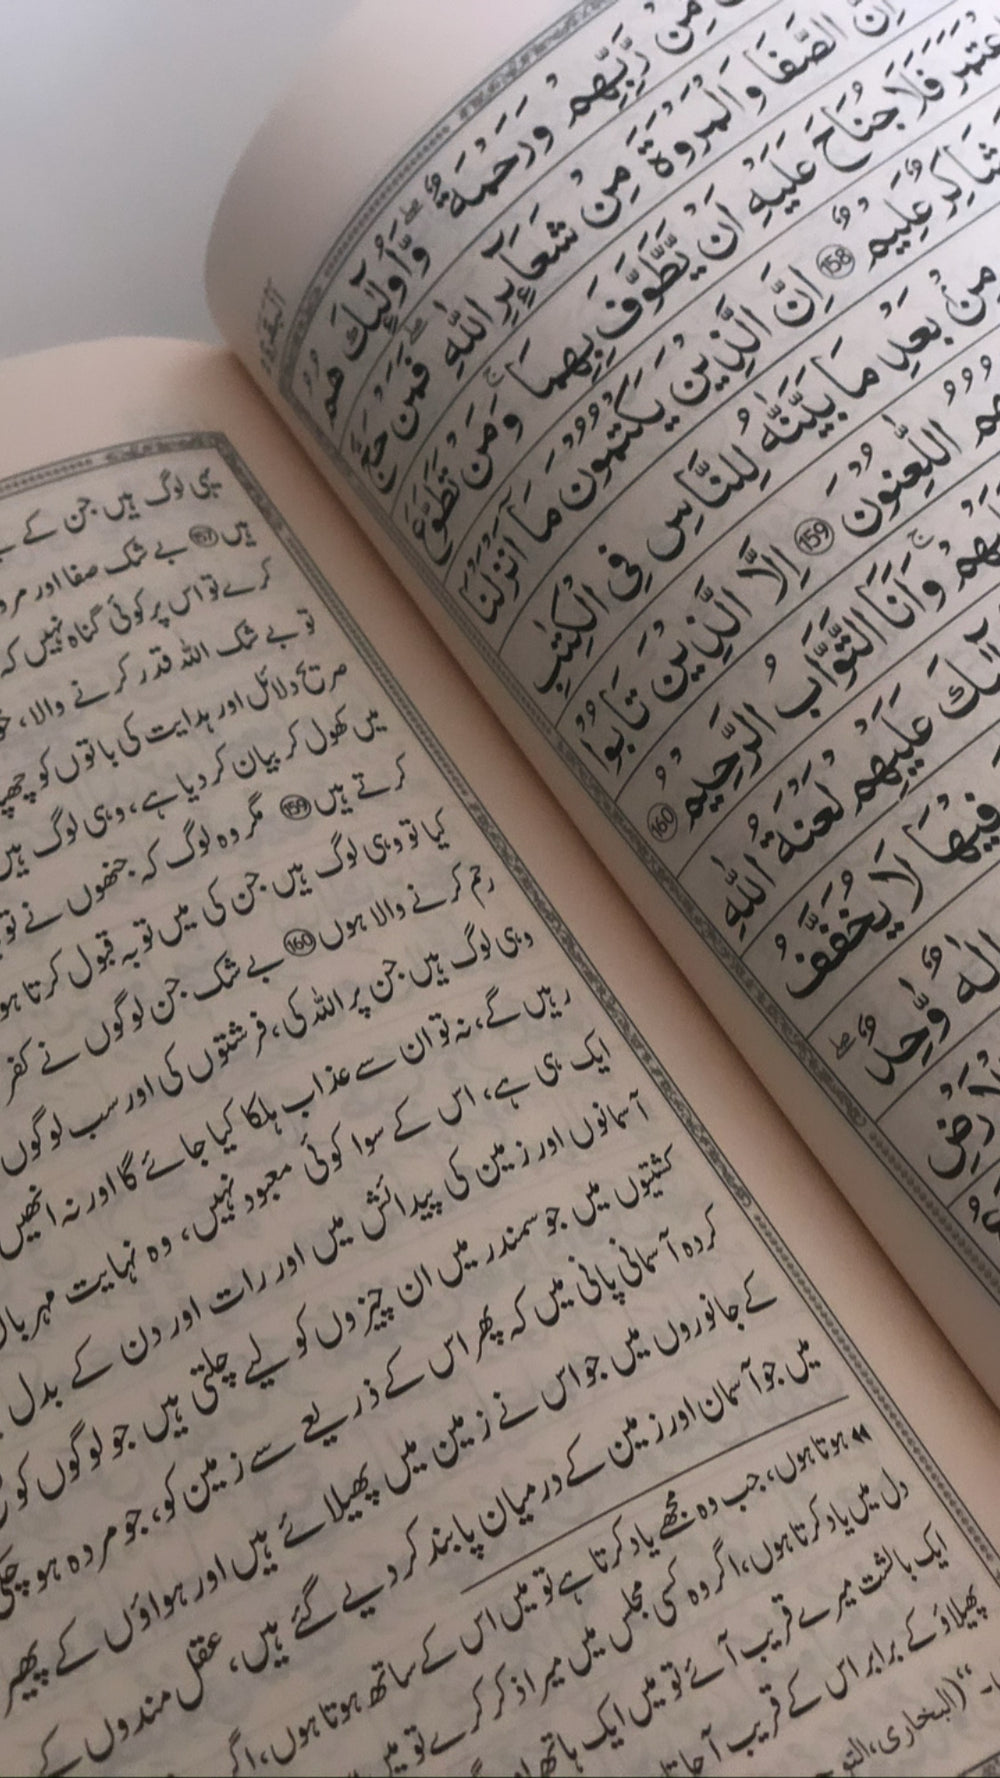 مِّن رَّبِّهِمْ وَرَحْمَةٌ ۖ وَّأُولٰٓئِكَ هُمُ
اِنَّ الصَّفَا وَالْمَرْوَةَ مِنْ شَعَآئِرِ اللّٰهِ ۖ فَمَنْ حَجَّ
فَلَا جُنَاحَ عَلَيْهِ اَنْ يَّطَّوَّفَ بِهِمَا ۚ وَمَنْ تَطَوَّعَ
شَاكِرٌ عَلِيْمٌ 158 اِنَّ الَّذِيْنَ يَكْتُمُوْنَ مَآ اَنْزَلْنَا
مِنْ بَعْدِ مَا بَيَّنّٰهُ لِلنَّاسِ فِي الْكِتٰبِ
اللّٰعِنُوْنَ 159 اِلَّا الَّذِيْنَ تَابُوْا
وَاَنَا التَّوَّابُ الرَّحِيْمُ 160
عَلَيْهِمْ لَعْنَةُ اللّٰهِ
فِيْهَا لَا يُخَفَّفُ
اِلٰهٌ وَّاحِدٌ ۖ
یہی لوگ ہیں جن کے
ہیں 157 بے شک صفا اور
کرے تو اس پر کوئی گناہ نہیں کہ
تو بے شک اللہ قدر کرنے والا،
صریح دلائل اور ہدایت کی باتوں کو
میں کھول کر بیان کر دیا ہے، وہی لوگ ہیں
کرتے ہیں 159 مگر وہ لوگ کہ جنھوں نے
کیا تو وہی لوگ ہیں جن کی میں توبہ قبول کرتا
رحم کرنے والا ہوں 160 بے شک جن لوگوں نے کفر
وہی لوگ ہیں جن پر اللہ کی، فرشتوں کی اور سب لوگوں
رہیں گے، نہ تو ان سے عذاب ہلکا کیا جائے گا اور نہ انھیں
ایک ہی ہے، اس کے سوا کوئی معبود نہیں، وہ نہایت
آسمانوں اور زمین کی پیدائش میں اور رات اور دن کے بدل
کشتیوں میں جو سمندر میں ان چیزوں کو لیے چلتی ہیں جو لوگوں کو
کردہ آسمانی پانی میں کہ پھر اس کے ذریعے سے زمین کو، جو مردہ ہو چکی
کے جانوروں میں جو اس نے زمین میں پھیلائے ہیں اور ہواؤں کے پھیر
میں جو آسمان اور زمین کے درمیان پابند کر دیے گئے ہیں، عقل مندوں کے
ہوتا ہوں، جب وہ مجھے یاد کرتا ہے تو میں اس کے ساتھ ہوتا ہوں،
دل میں یاد کرتا ہوں، اگر وہ کسی مجلس میں میرا ذکر کرے تو میں
ایک بالشت میرے قریب آئے تو میں ایک ہاتھ
پھیلاؤ کے برابر اس کے قریب آ جاتا
(البخاری،